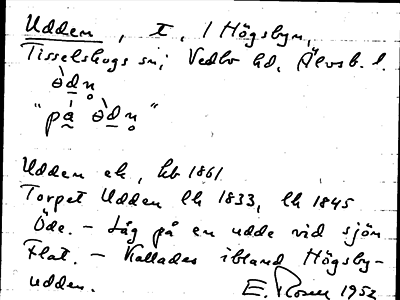 Udden, T, i Högsbyn,
Tisselskogs sn, Vedbo hd, Älvsb. l.
ə̀dn̥
"pá ə̀dn̥"
Udden ek, hb 1861
Torpet Udden lh 1833, lh 1845
Öde. - Låg på en udde vid sjön
Flat. - Kallades ibland Högsby-
udden. E. Rosen 1952